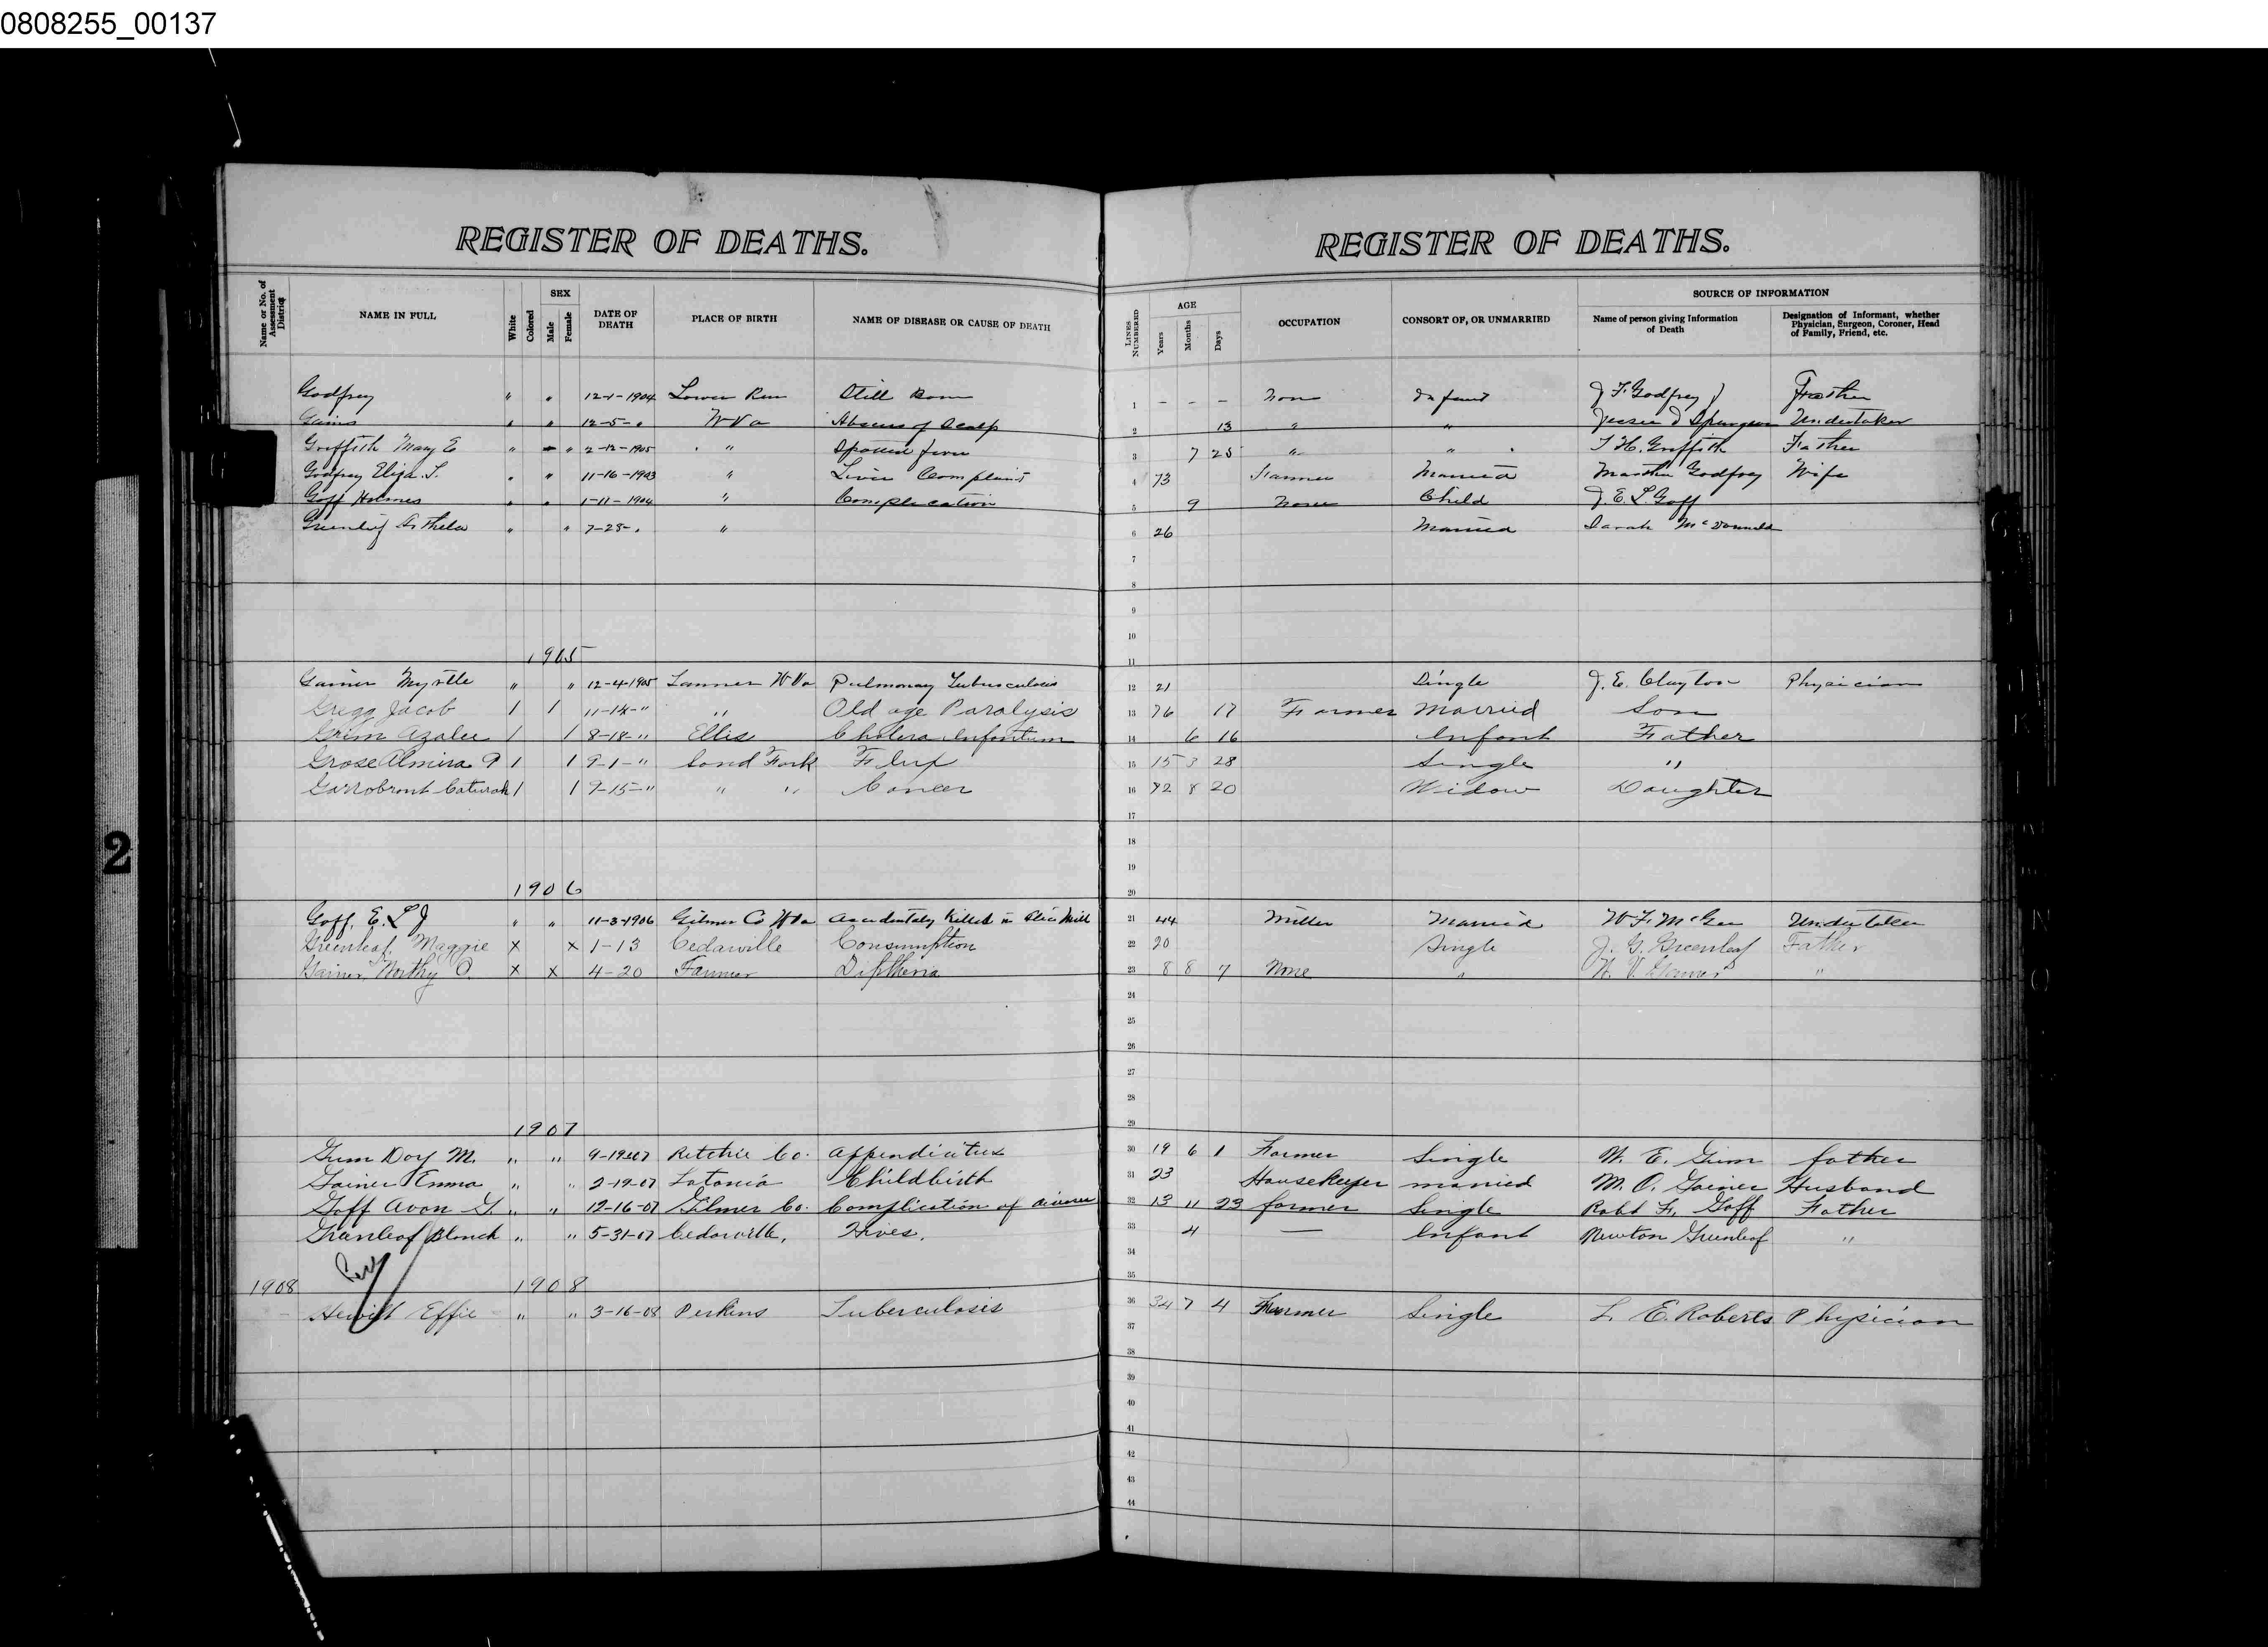 0808255_00137
REGISTER OF DEATHS. REGISTER OF DEATHS.
Name or No. of Assessment District NAME IN FULL White Colored SEX Male Female DATE OF DEATH PLACE OF BIRTH NAME OF DISEASE OR CAUSE OF DEATH LINES NUMBERED AGE Years Months Days OCCUPATION CONSORT OF, OR UNMARRIED SOURCE OF INFORMATION Name of person giving Information of Death Designation of Informant, whether Physician, Surgeon, Coroner, Head of Family, Friend, etc.
Godfrey " " 12-1-1904 Lower Run Still Born 1 - - - None Infant J F Godfrey Father
Gains " " 12-5-" W Va Abscess of Scalp 2 13 " " Spurgeon Undertaker
Griffith Mary E " " 2-12-1905 " Spotted fever 3 7 25 " " T H. Griffith Father
Godfrey Eliza. S. " " 11-16-1903 " Liver Complaint 4 73 Farmer Married Martha Godfrey Wife
Goff Holmes " " 1-11-1904 " Complication 5 9 None Child J. E. L. Goff
Greenlief " " 7-28-" " 6 26 Married Sarah McDonald
7
8
9
10
1905 11
Gainer Myrtle " " 12-4-1905 Tanner W Va Pulmonary Tuberculosis 12 21 Single J. E. Clayton Physician
Gregg Jacob 1 1 11-14-" " Old age Paralysis 13 76 17 Farmer Married Son
Grim Azalee 1 1 8-18-" Ellis Cholera Infantum 14 6 16 Infant Father
Grose Almira P 1 1 9-1-" Sand Fork Flux 15 15 3 28 Single "
1 1 9-15-" " " Cancer 16 72 8 20 Widow Daughter
17
18
19
1906 20
Goff, E. L J " " 11-3-1906 Gilmer Co W Va Accidentaly Killed in Mill 21 44 Miller Married W F. McGee Undertaker
Greenleaf, Maggie X X 1-13 Cedarville Consumption 22 20 Single J. G. Greenleaf Father
Gainer, Worthy O. X X 4-20 Tanner Diptheria 23 8 8 7 None " W. V. Gainer "
24
25
26
27
28
1907 29
Gum Doy M. " " 9-19-07 Ritchie Co. Appendicitus 30 19 6 1 Farmer Single W. E. Gum father
Gainer Emma " " 2-19-07 Latonia Childbirth 31 23 Housekeeper married M. O. Gainer Husband
Goff Avon " " 12-16-07 Gilmer Co. Complication of disease 32 13 11 23 farmer Single Robt F. Goff Father
Greenleaf Blanch " " 5-31-07 Cedarville, Hives. 33 4 — Infant Newton Greenleaf "
34
1908 1908 35
Hewitt Effie " " 3-16-08 Perkins Tuberculosis 36 34 7 4 Farmer Single L. E. Roberts Physician
37
38
39
40
41
42
43
44
2